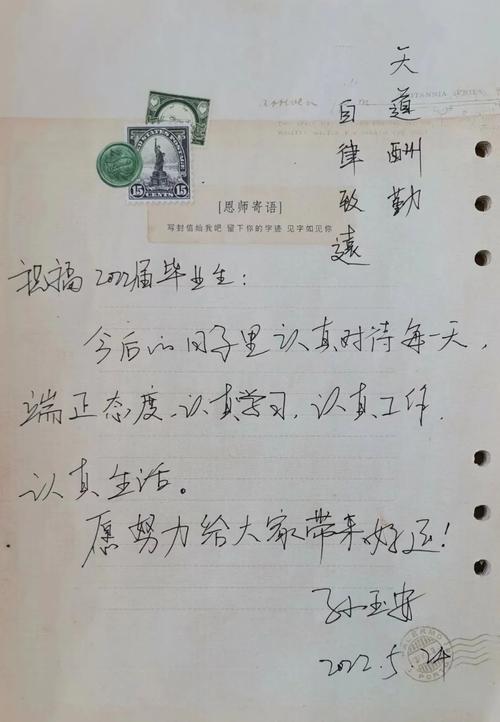 天道酬勤
自律致远
15 15
CENTS
[恩师寄语]
写封信给我吧 留下你的字迹 见字如见你
祝福2022届毕业生:
今后的日子里认真对待每一天,
端正态度、认真学习、认真工作、
认真生活。
愿努力给大家带来好运!
孙玉安
2022.5.24